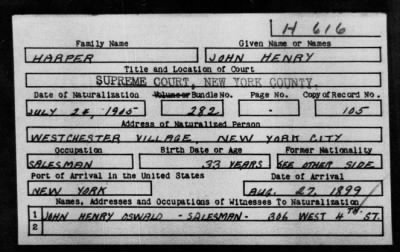 H 616
Family Name Given Name or Names
HARPER JOHN HENRY
Title and Location of Court
SUPREME COURT, NEW YORK COUNTY.
Date of Naturalization Volume or Bundle No. Page No. Copy of Record No.
JULY 28, 1905 282 - 105
Address of Naturalized Person
WESTCHESTER VILLAGE, NEW YORK CITY
Occupation Birth Date or Age Former Nationality
SALESMAN 33 YEARS SEE OTHER SIDE
Port of Arrival in the United States Date of Arrival
NEW YORK AUG. 27, 1899
Names, Addresses and Occupations of Witnesses To Naturalization
1 JOHN HENRY OSWALD - SALESMAN - 306 WEST 4TH ST.
2